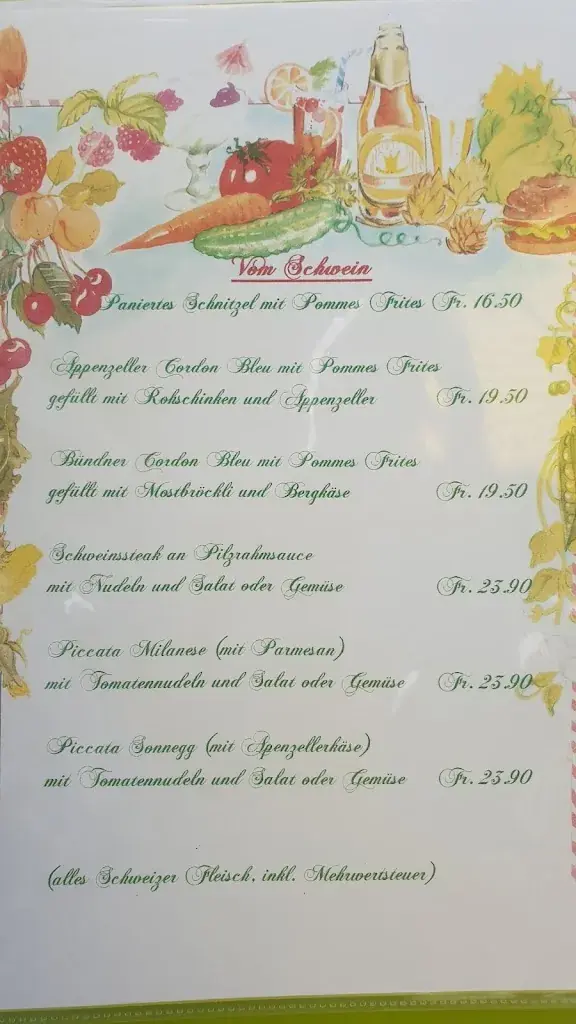 Vom Schwein
Paniertes Schnitzel mit Pommes Frites Fr. 16.50
Appenzeller Cordon Bleu mit Pommes Frites
gefüllt mit Rohschinken und Appenzeller Fr. 19.50
Bündner Cordon Bleu mit Pommes Frites
gefüllt mit Mostbröckli und Bergkäse Fr. 19.50
Schweinssteak an Pilzrahmsauce
mit Nudeln und Salat oder Gemüse Fr. 23.90
Piccata Milanese (mit Parmesan)
mit Tomatennudeln und Salat oder Gemüse Fr. 23.90
Piccata Sonnegg (mit Apenzellerkäse)
mit Tomatennudeln und Salat oder Gemüse Fr. 23.90
(alles Schweizer Fleisch, inkl. Mehrwertsteuer)